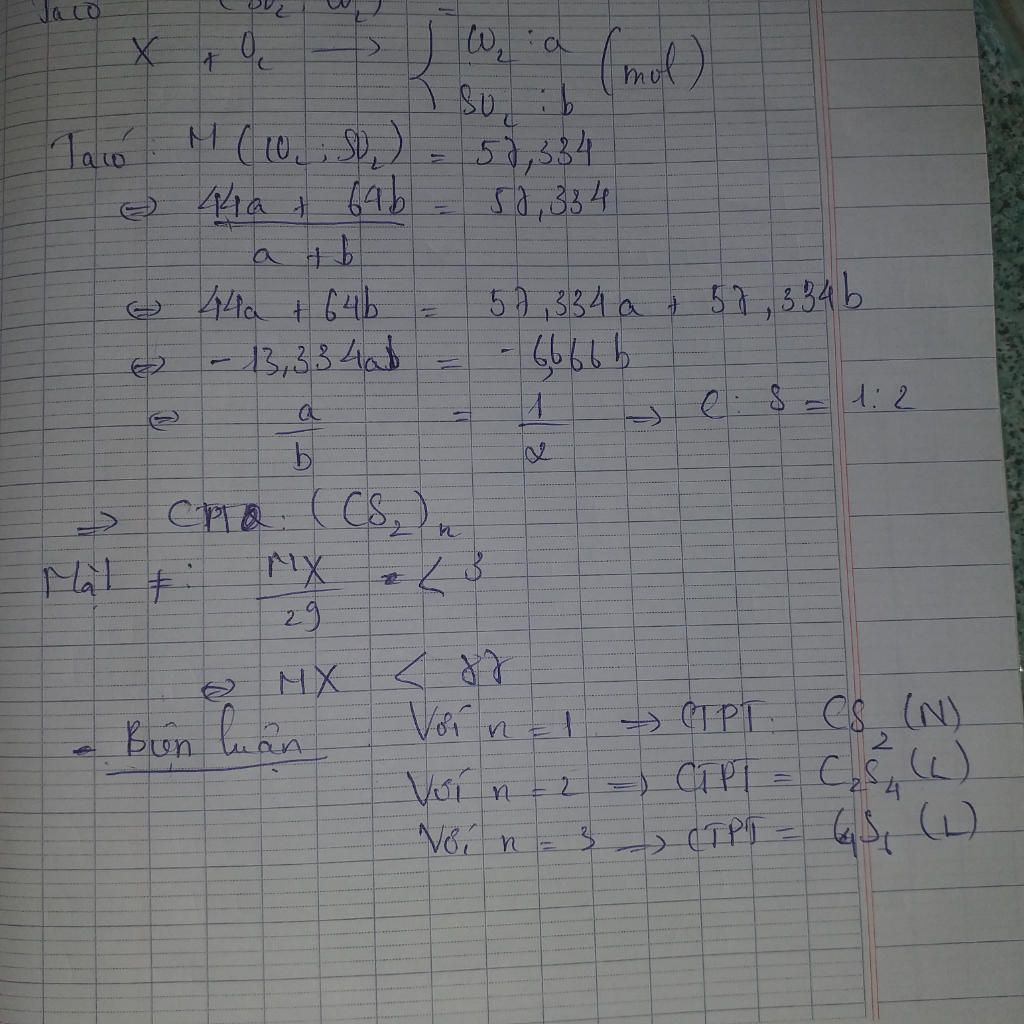 Ta có (SO₂, CO₂) =
X + O₂ → { CO₂ : a (mol)
SO₂ : b
Ta có: M (CO₂ ; SO₂) = 57,334
⇔ 44a + 64b = 57,334
a + b
⇔ 44a + 64b = 57,334a + 57,334b
⇔ - 13,334ab = - 6,666b
⇔ a/b = 1/2 ⇒ C : S = 1:2
⇒ CTPTQ: (CS₂)n
Mặt ≠: MX/29 < 3
⇔ MX < 87
- Biện luận Với n = 1 ⇒ CTPT: CS₂ (N)
Với n = 2 ⇒ CTPT = C₂S₄ (L)
Với n = 3 → CTPT = (L)